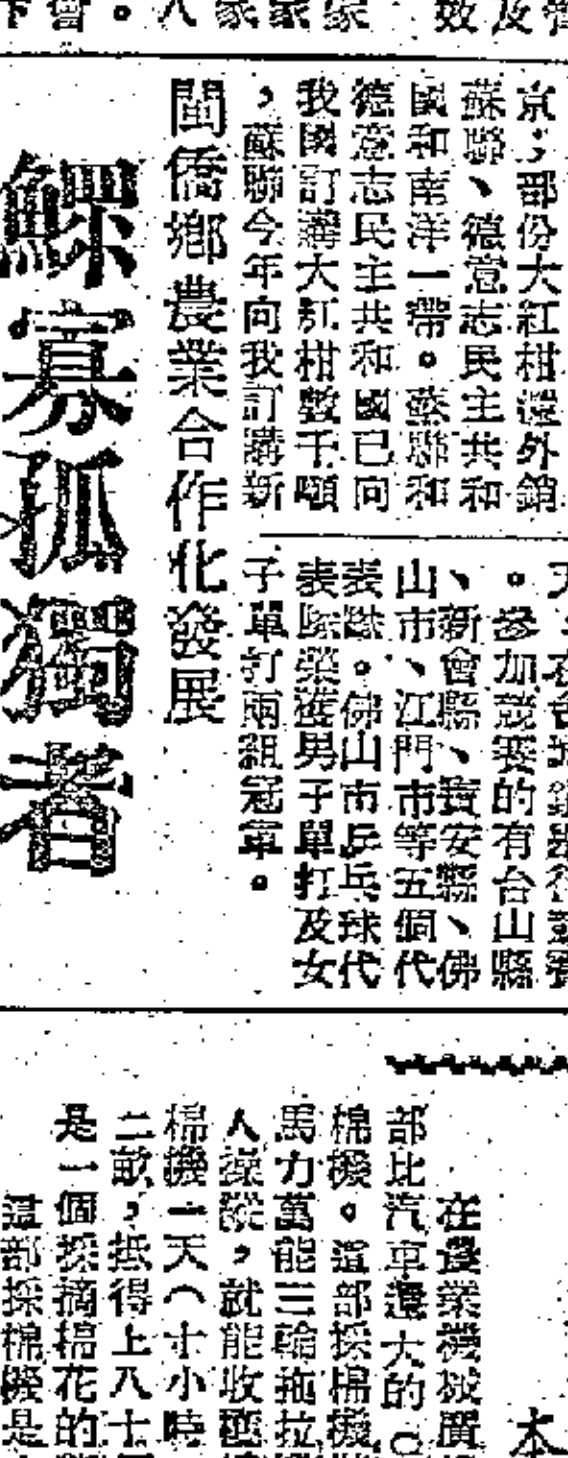 京；部份大紅柑還外銷
蘇聯、德意志民主共和
國和南洋一帶。蘇聯和
德意志民主共和國已向
我國訂購大紅柑數千噸
，蘇聯今年向我訂購新
。參加競賽的有台山縣
、新會縣、寶安縣、佛
山市、江門市等五個代
表隊。佛山市乒乓球代
表隊榮獲男子單打及女
子單打兩組冠軍。
閩僑鄉農業合作化發展
鰥寡孤獨者
本
在農業機械
部比汽車還大的
棉機。這部採棉機
馬力萬能三輪拖拉
人操縱，就能收
棉機一天（十小時
二畝，抵得上八十
是一個採摘棉花的
這部採棉機是